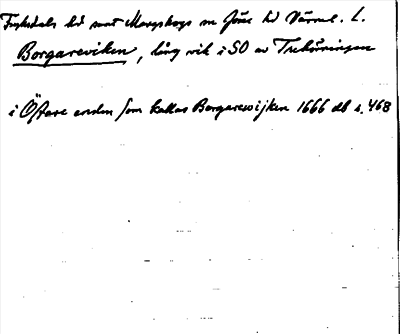 Fryksdals hd mot Mangskogs sn Jösse hd Värml. l.
Borgareviken, lång vik i SO av Treklöveringen
i Östare enden som kallas Borgarewijken 1666 db s. 468